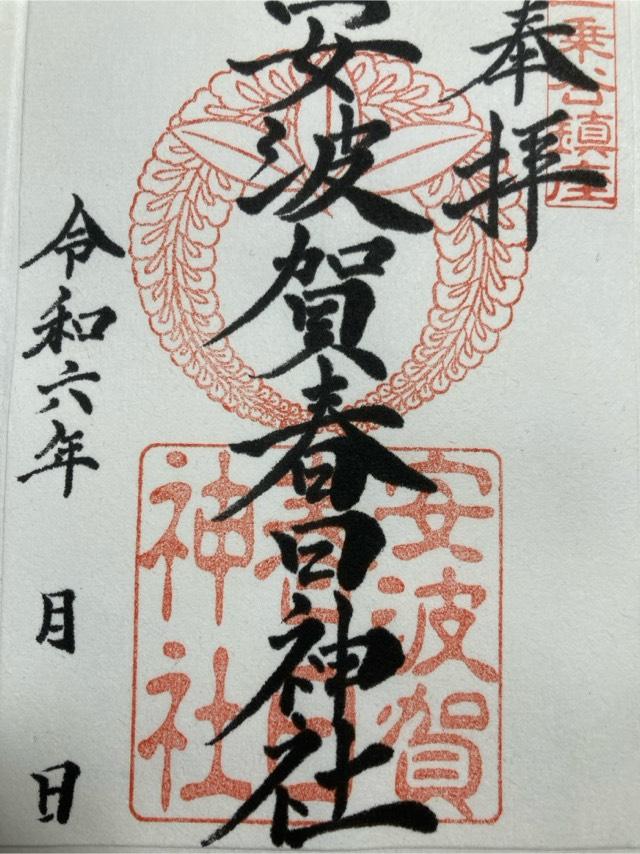 一乗谷鎮座
奉拝
安波賀春日神社
安波賀
春日
神社
令和六年 月 日